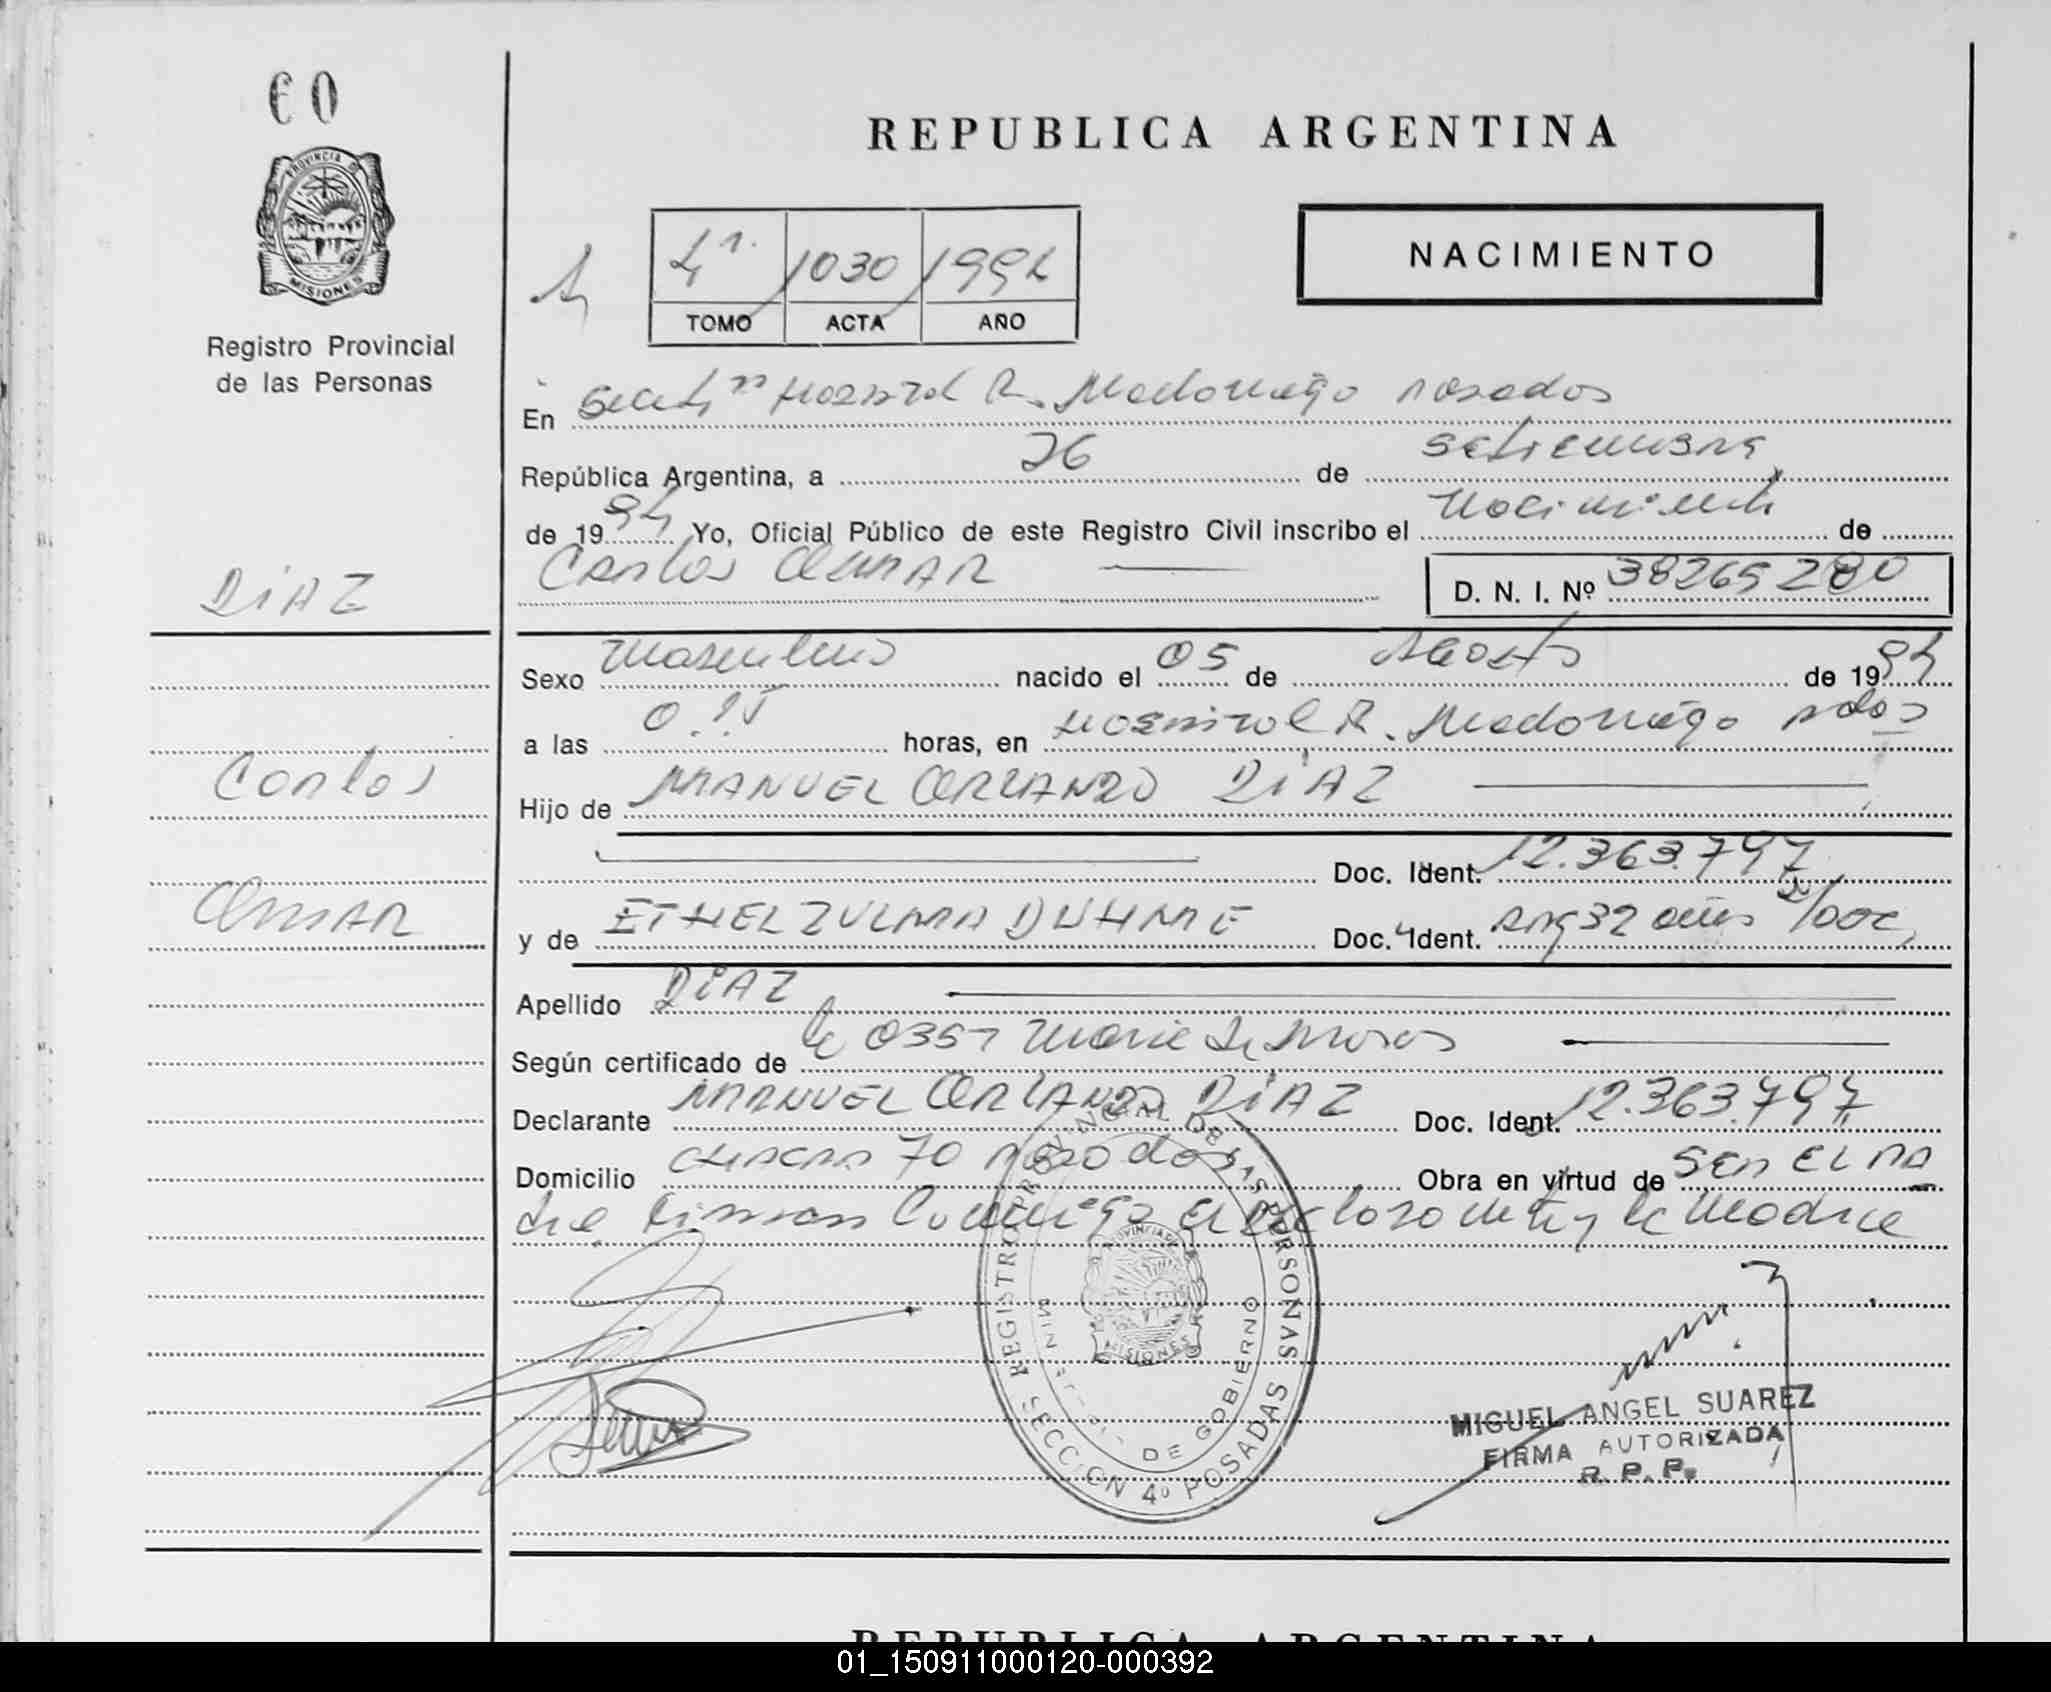 60
PROVINCIA DE
MISIONES
Registro Provincial
de las Personas
REPUBLICA ARGENTINA
4º 1030 1994
TOMO ACTA AÑO
NACIMIENTO
En Secc 4ª Hospital R. Madariaga Posadas
República Argentina, a 26 de Setiembre
de 1994 Yo, Oficial Público de este Registro Civil inscribo el Nacimiento de
Carlos Omar D. N. I. Nº 38265280
DIAZ
Carlos
Omar
Sexo Masculino nacido el 05 de Agosto de 1994
a las horas, en Hospital R. Madariaga Pdas
Hijo de MANUEL ORLANDO DIAZ
Doc. Ident. 12.363.797
y de ETHEL ZULMA DUHME Doc. Ident. Arg 32 años s/doc
Apellido DIAZ
Según certificado de
Declarante MANUEL ORLANDO DIAZ Doc. Ident. 12.363.797
Domicilio CHACRA 70 Posadas Obra en virtud de Ser EL PA
dre Firman Conmigo el declarante y la Madre
REGISTRO PROVINCIAL DE LAS PERSONAS
MINISTERIO DE GOBIERNO
PROVINCIA DE
MISIONES
SECCION 4º POSADAS
MIGUEL ANGEL SUAREZ
FIRMA AUTORIZADA
R. P. P.
REPUBLICA ARGENTINA
01_150911000120-000392